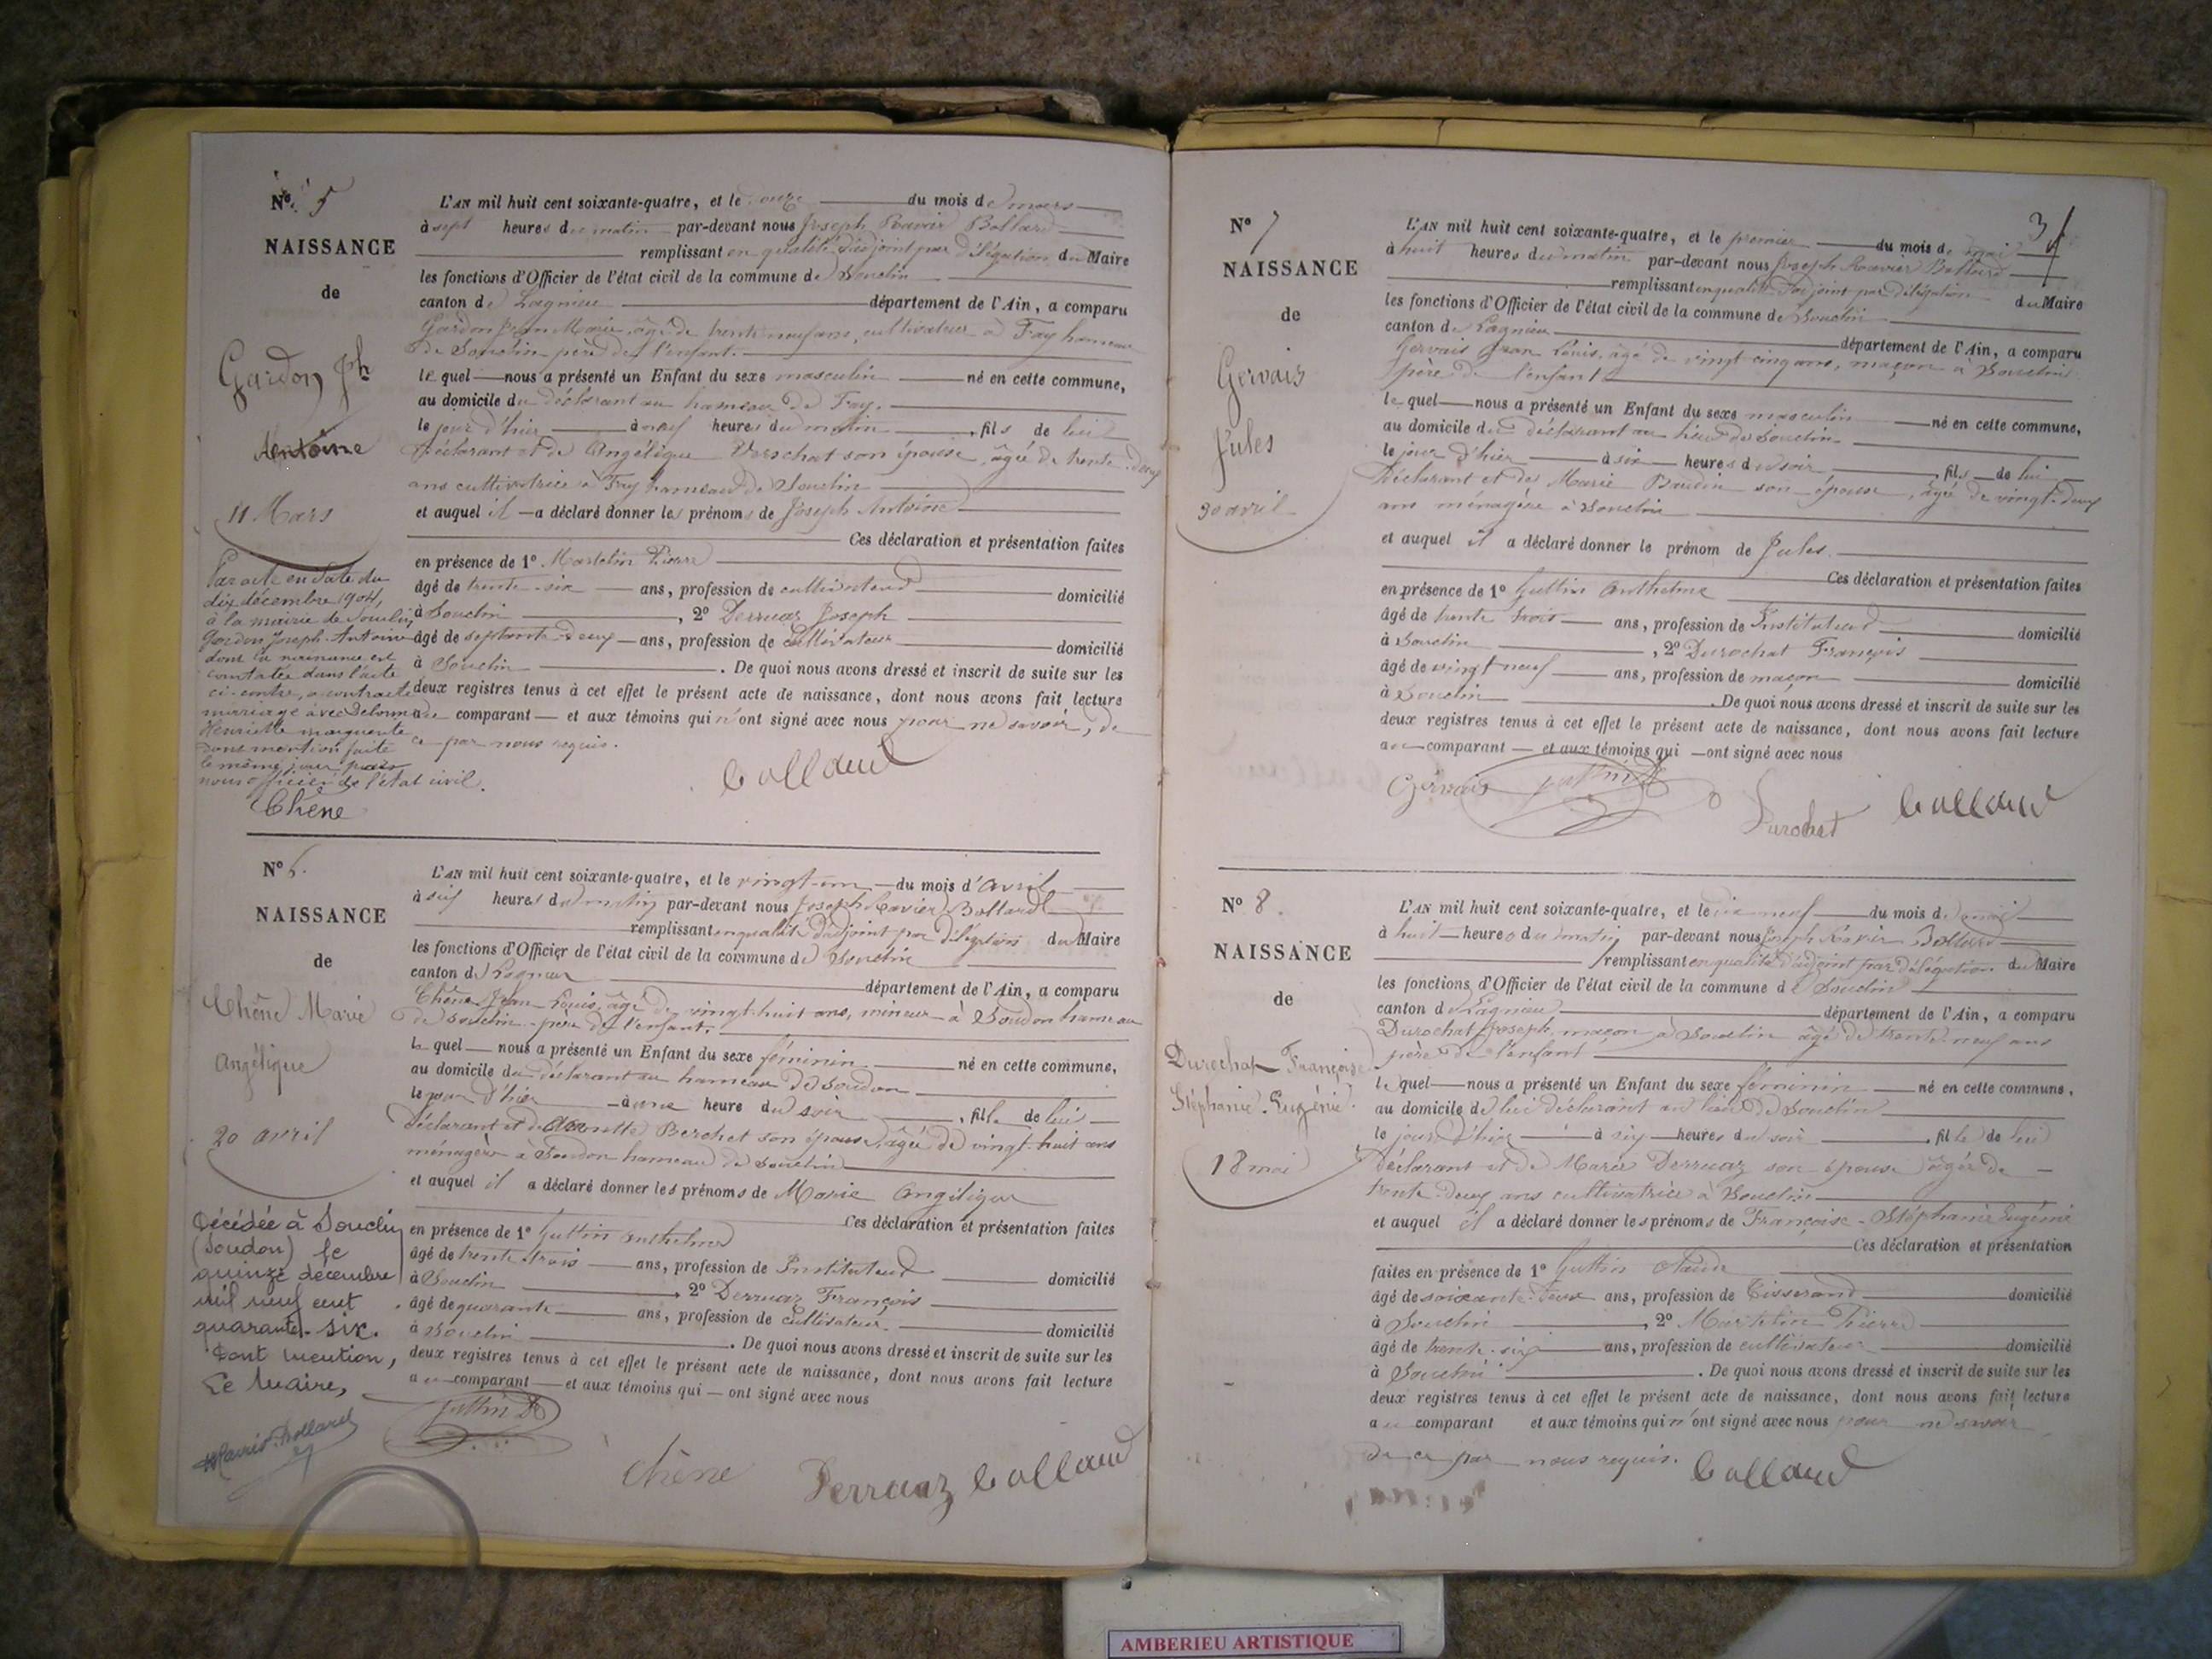 N° 5
NAISSANCE
de
Gardon Jph
Antoine
11 Mars
Par acte en date du
dix décembre 1904,
à la mairie de Souclin,
Gardon Joseph Antoine
dont la naissance est
constatée dans l'acte
ci-contre, a contracté
mariage avec Delorme
Henriette marguerite
dont mention faite
le même jour par
nous officier de l'état civil.
Chêne
L'AN mil huit cent soixante-quatre, et le onze du mois de mars
à sept heures du matin par-devant nous Joseph Ravier Bollard
remplissant en qualité d'adjoint par délégation du Maire
les fonctions d'Officier de l'état civil de la commune de Souclin
canton de Lagnieu département de l'Ain, a comparu
Gardon Jean Marie, âgé de trente neuf ans, cultivateur à Fay hameau
de Souclin père de l'enfant.
le quel nous a présenté un Enfant du sexe masculin né en cette commune,
au domicile du déclarant au hameau de Fay.
le jour d'hier à neuf heures du matin, fils de lui
déclarant et de Angélique son épouse, âgée de trente-deux
ans cultivatrice à Fay hameau de Souclin
et auquel il a déclaré donner les prénoms de Joseph Antoine
Ces déclaration et présentation faites
en présence de 1° Martelin Pierre
âgé de trente-six ans, profession de cultivateur domicilié
à Souclin, 2° Derruaz Joseph
âgé de septante-deux ans, profession de cultivateur domicilié
à Souclin. De quoi nous avons dressé et inscrit de suite sur les
deux registres tenus à cet effet le présent acte de naissance, dont nous avons fait lecture
au comparant et aux témoins qui n'ont signé avec nous pour ne savoir, de
ce par nous requis.
Bollard
N° 6.
NAISSANCE
de
Chêne Marie
Angélique
20 avril
Décédée à Souclin
(Soudon) le
quinze décembre
mil neuf cent
quarante-six.
Dont mention,
Le Maire,
L'AN mil huit cent soixante-quatre, et le vingt-un du mois d'avril
à six heures du matin par-devant nous Joseph Ravier Bollard
remplissant en qualité d'adjoint par délégation du Maire
les fonctions d'Officier de l'état civil de la commune de Souclin
canton de Lagnieu département de l'Ain, a comparu
Chêne Jean-Louis, âgé de vingt-huit ans, mineur à Soudon hameau
de Souclin père de l'enfant.
le quel nous a présenté un Enfant du sexe féminin né en cette commune,
au domicile du déclarant au hameau de Soudon
le jour d'hier à une heure du soir, fille de lui
déclarant et de Annette Berchet son épouse, âgée de vingt-huit ans
ménagère à Soudon hameau de Souclin
et auquel il a déclaré donner les prénoms de Marie Angélique
Ces déclaration et présentation faites
en présence de 1° Guttin Anthelme
âgé de trente-trois ans, profession de Instituteur domicilié
à Souclin, 2° Derruaz François
âgé de quarante ans, profession de cultivateur domicilié
à Souclin. De quoi nous avons dressé et inscrit de suite sur les
deux registres tenus à cet effet le présent acte de naissance, dont nous avons fait lecture
au comparant et aux témoins qui ont signé avec nous
guttin
Chêne Derruaz Bollard
3
N° 7
NAISSANCE
de
Gervais
Jules
30 avril
L'AN mil huit cent soixante-quatre, et le premier du mois de mai
à huit heures du matin par-devant nous Joseph Ravier Bollard
remplissant en qualité d'adjoint par délégation du Maire
les fonctions d'Officier de l'état civil de la commune de Souclin
canton de Lagnieu département de l'Ain, a comparu
Gervais Jean Louis, âgé de vingt cinq ans, maçon à Souclin
père de l'enfant
le quel nous a présenté un Enfant du sexe masculin né en cette commune,
au domicile du déclarant au lieu de Souclin
le jour d'hier à six heures du soir, fils de lui
déclarant et de Marie Baudin son épouse, âgée de vingt-deux
ans ménagère à Souclin
et auquel il a déclaré donner le prénom de Jules.
Ces déclaration et présentation faites
en présence de 1° Guttin Anthelme
âgé de trente trois ans, profession de Instituteur domicilié
à Souclin, 2° Durochat François
âgé de vingt neuf ans, profession de maçon domicilié
à Souclin. De quoi nous avons dressé et inscrit de suite sur les
deux registres tenus à cet effet le présent acte de naissance, dont nous avons fait lecture
au comparant et aux témoins qui ont signé avec nous
Gervais guttin Durochat Bollard
N° 8.
NAISSANCE
de
Durochat Françoise
Stéphanie-Eugénie
18 mai
L'AN mil huit cent soixante-quatre, et le dix neuf du mois de mai
à huit heures du matin par-devant nous Joseph Ravier Bollard
remplissant en qualité d'adjoint par délégation du Maire
les fonctions d'Officier de l'état civil de la commune de Souclin
canton de Lagnieu département de l'Ain, a comparu
Durochat Joseph, maçon à Souclin âgé de trente-neuf ans
père de l'enfant
le quel nous a présenté un Enfant du sexe féminin né en cette commune,
au domicile de lui déclarant au lieu de Souclin
le jour d'hier à six heures du soir, fille de lui
déclarant et de Marie Derruaz son épouse âgée de
trente-deux ans cultivatrice à Souclin
et auquel il a déclaré donner les prénoms de Françoise-Stéphanie Eugénie
Ces déclaration et présentation
faites en présence de 1° Guttin Claude
âgé de soixante-deux ans, profession de Tisserand domicilié
à Souclin, 2° Martelin Pierre
âgé de trente-six ans, profession de cultivateur domicilié
à Souclin. De quoi nous avons dressé et inscrit de suite sur les
deux registres tenus à cet effet le présent acte de naissance, dont nous avons fait lecture
au comparant et aux témoins qui n'ont signé avec nous pour ne savoir
de ce par nous requis.
Bollard
AMBERIEU ARTISTIQUE